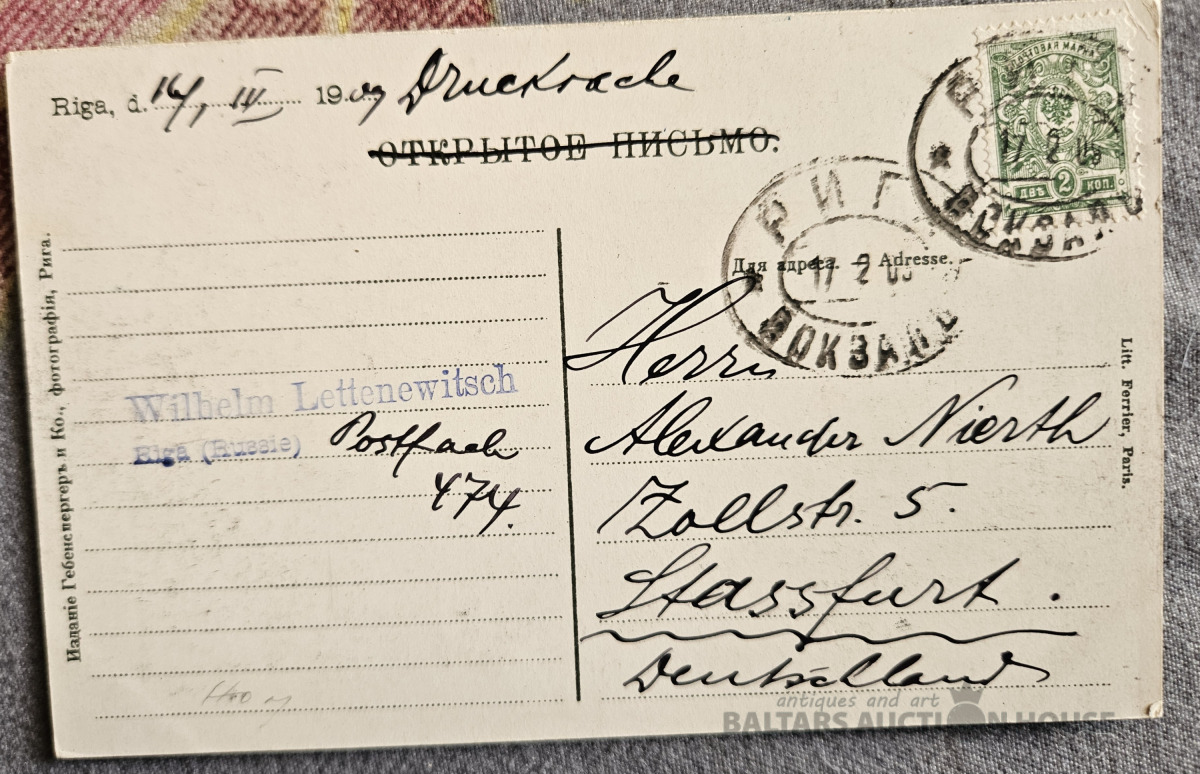 Riga, d. 14/III 1909 Drucksache
ОТКРЫТОЕ ПИСЬМО.
ПОЧТОВАЯ МАРКА
17 2 09
ДВѢ 2 КОП.
ВОКЗАЛЪ
РИГА
17 2 09
ВОКЗАЛЪ
Для адреса. — Adresse.
Herrn
Alexander Nierth
Zollstr. 5.
Stassfurt.
Deutschland
Wilhelm Lettenewitsch
Riga (Russie) Postfach
474.
Изданіе Гебенспергеръ и Ко., фотографія, Рига.
Litt. Ferrier, Paris.
antiques and art
BALTARS AUCTION HOUSE